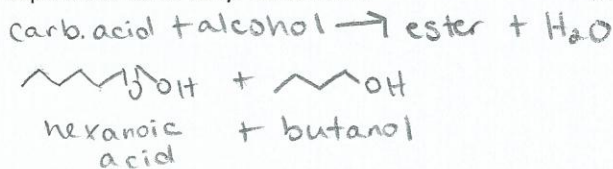 carb. acid + alcohol → ester + H₂O
OH + OH
hexanoic + butanol
acid